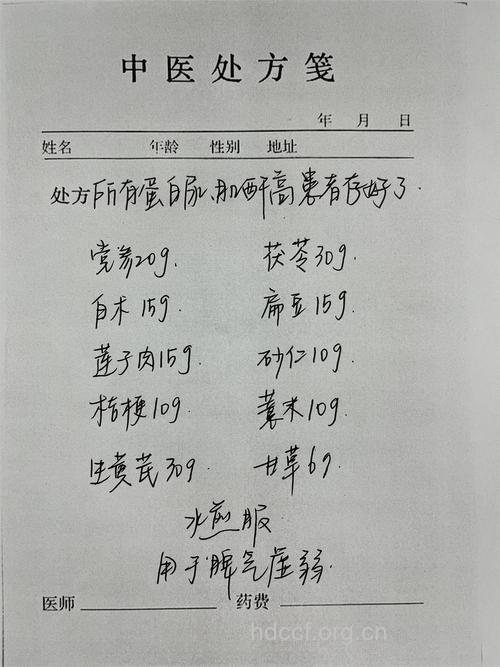 中医处方笺
年 月 日
姓名 年龄 性别 地址
处方 所有蛋白尿、肌酐高患者存好了.
党参20g. 茯苓30g.
白术 15g 扁豆15g.
莲子肉15g. 砂仁10g.
桔梗10g. 薏米10g.
生黄芪30g. 甘草6g
水煎服
用于脾气虚弱.
医师 药费
hdccf.org.cn